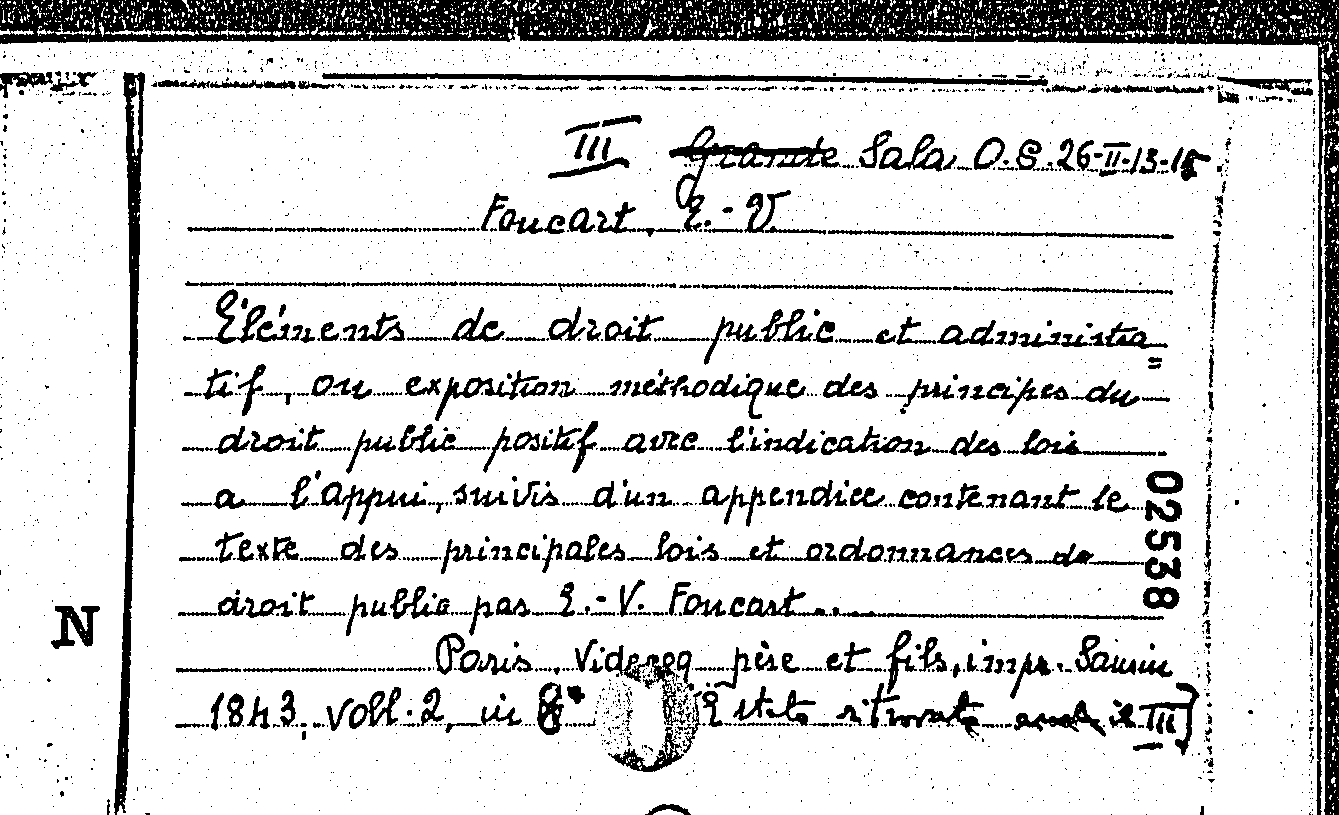 III Grande Sala O.S. 26-II-13-15
Foucart, E.-V.
Eléments de droit public et administra=
tif, ou exposition méthodique des principes du
droit public positif avec l'indication des lois
a l'appui, suivis d'un appendice contenant le
texte des principales lois et ordonnances de
droit public pas E.-V. Foucart....
Paris, Videcoq père et fils, impr. Saurin
1843, voll. 2, in 8° E stato ritrovato anche il III]
02538
N